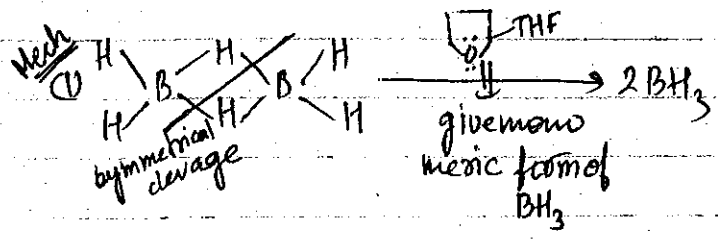 Mech
(1)
H H H
B B
H H H
symmetrical
clevage
THF
:O:
2BH₃
givemono
meric form of
BH₃